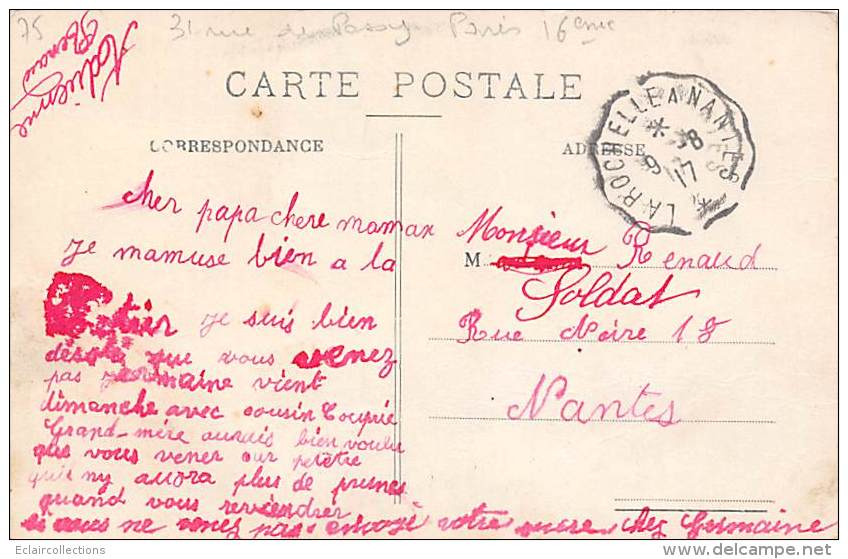 75
31 rue de Passy Paris 16eme
Adrienne
Renaud
CARTE POSTALE
CORRESPONDANCE
ADRESSE
LA ROCHELLE A NANTES
8
9
17
cher papa chere maman
je mamuse bien a la
je suis bien
désolé que vous venez
pas germaine vient
dimanche avec cousin
Grand-mère aurais bien voulu
que vous vener car petetre
quil ny aurora plus de prunes
quand vous reviendrer
si vous ne venez pas envoyé votre sucre chez Germaine
Monsieur
M Renaud
Soldat
Rue Noire 18
Nantes
Eclaircollections
delcampe.net